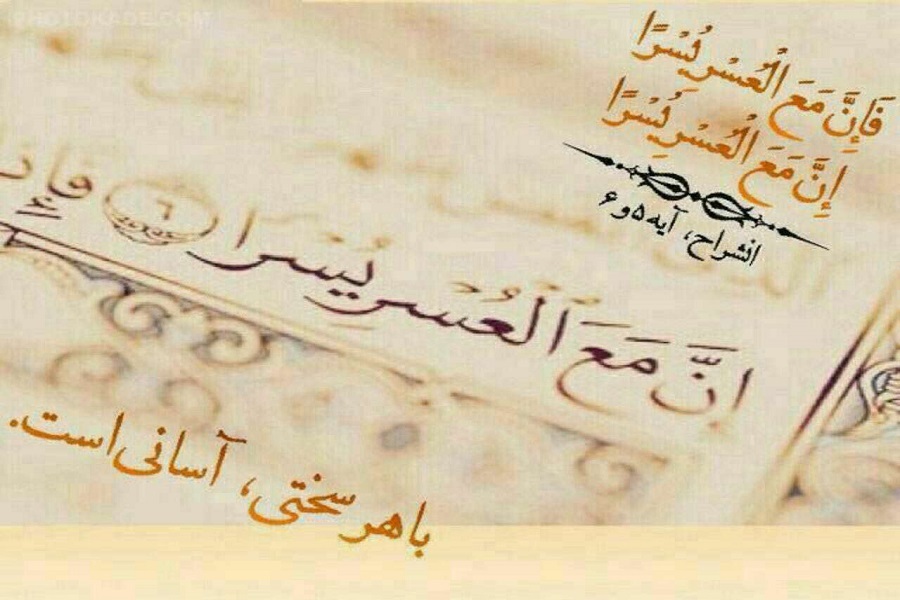 PHOTOKADE.COM
فَإِنَّ مَعَ الْعُسْرِ يُسْرًا
إِنَّ مَعَ الْعُسْرِ يُسْرًا
انشراح، آیه ۵ و ۶
إِنَّ مَعَ ٱلْعُسْرِ يُسْرًا ٦ فَإِذَ
با هر سختی، آسانی است.